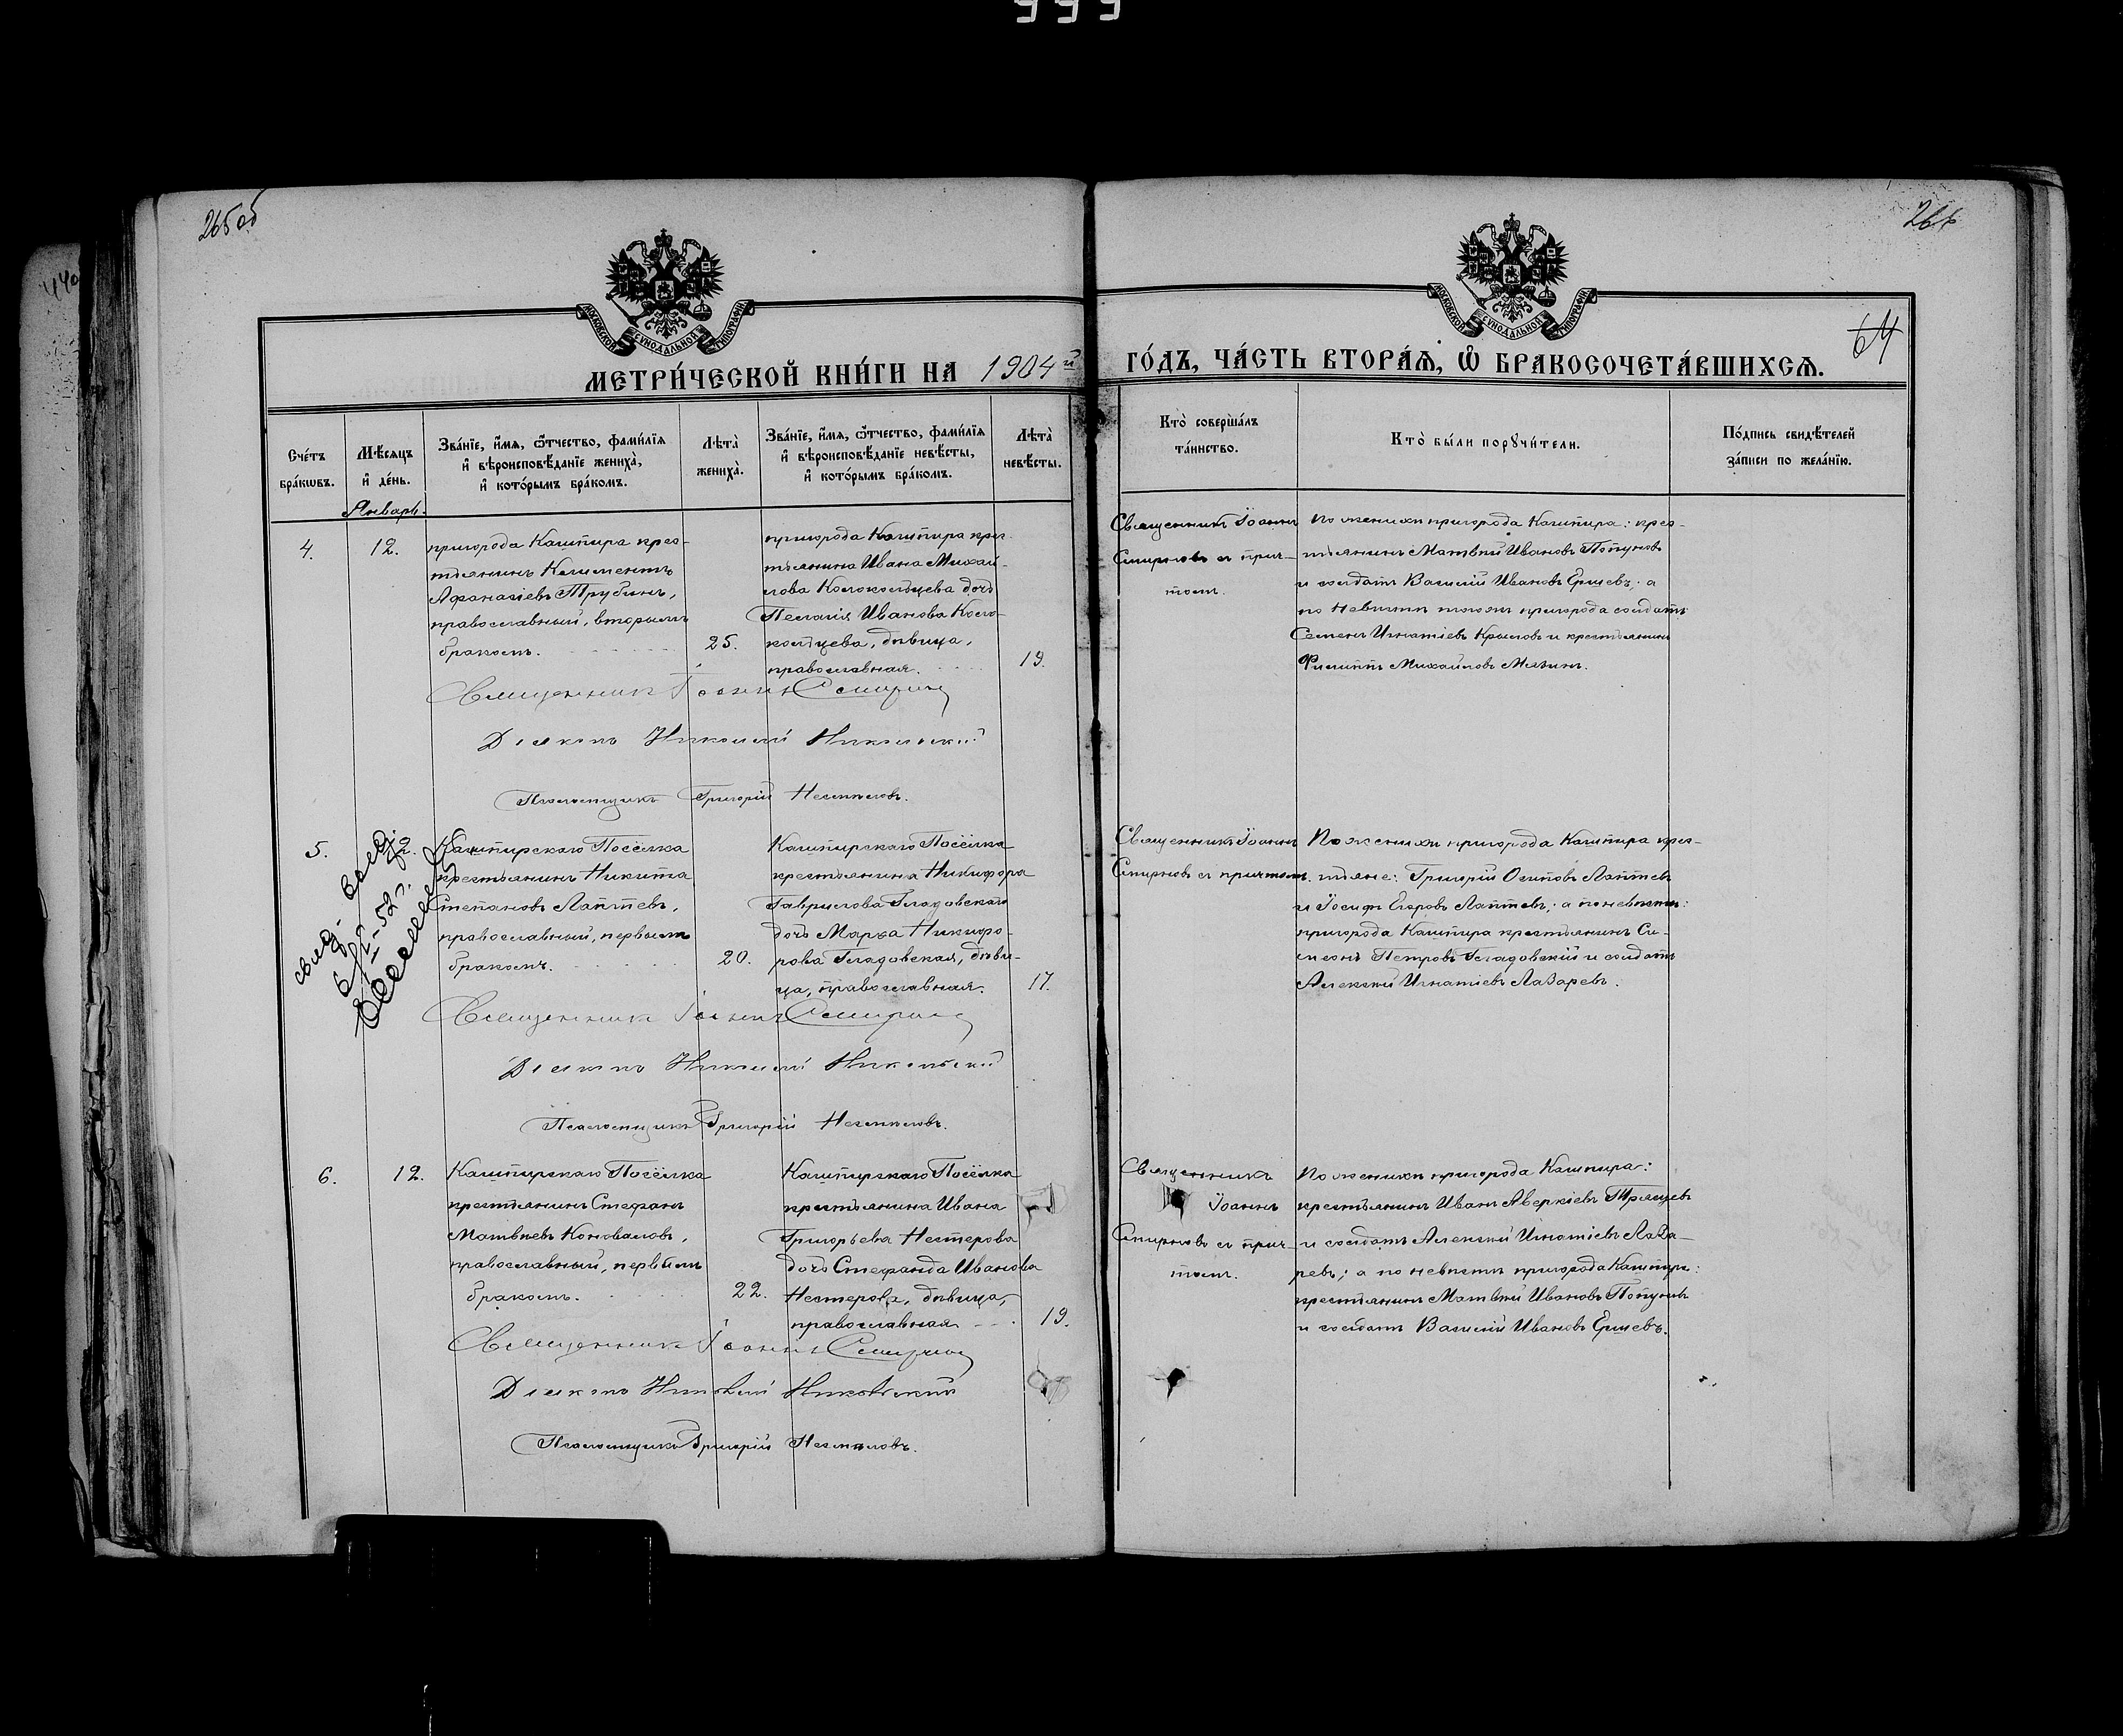 999
440
265 об
266
64
МОСКОВСКОЙ СУНОДАЛЬНОЙ ТИПОГРАФІИ
МОСКОВСКОЙ СУНОДАЛЬНОЙ ТИПОГРАФІИ
МЕТРИ́ЧЕСКОЙ КНИ́ГИ НА 1904й ГО́ДЪ, ЧА́СТЬ ВТОРА́Ѧ, Ѡ҆ БРАКОСОЧЕТА́ВШИХСѦ.
Сче́тъ
бра́кѡвъ.
Мѣ́сѧцъ
и҆ де́нь.
Зва́нїе, и҆́мѧ, ѻ҆́тчество, фами́лїѧ
и҆ вѣроисповѣ́данїе жениха̀,
и҆ кото́рымъ бра́комъ.
Лѣта̀
жениха̀.
Зва́нїе, и҆́мѧ, ѻ҆́тчество, фами́лїѧ
и҆ вѣроисповѣ́данїе невѣ́сты,
и҆ кото́рымъ бра́комъ.
Лѣта̀
невѣ́сты.
Кто̀ соверша́лъ
та́инство.
Кто̀ бы́ли порꙋчи́тели.
По́дпись свидѣ́телей
за́писи по жела́нїю.
Январь.
4.
12.
пригорода Кашпира крес-
тьянинъ Климентъ
Афанасіевъ Трубинъ,
православный, вторымъ
бракомъ.
25.
пригорода Кашпира крес-
тьянина Ивана Михай-
лова Колокольцева дочь
Пелагія Иванова Коло-
кольцева, дѣвица,
православная.
19.
Священникъ Іоаннъ
Смирновъ съ прич-
томъ.
По женихѣ пригорода Кашпира: крес-
тьянинъ Матвѣй Ивановъ Попуновъ
и солдатъ Василій Ивановъ Ершевъ; а
по невѣстѣ того же пригорода солдатъ
Семенъ Игнатіевъ Крыловъ и крестьянинъ
Филиппъ Михайловъ Мязинъ.
Священникъ Іоаннъ Смирновъ
Діаконъ Николай Никольский
Псаломщикъ Григорій Несмѣловъ.
5.
12.
Кашпирскаго Посёлка
крестьянинъ Никита
Степановъ Лаптевъ,
православный, первымъ
бракомъ.
20.
Кашпирскаго Посёлка
крестьянина Никифора
Гаврилова Гладовскаго
дочь Марѳа Никифо-
рова Гладовская, дѣви-
ца, православная.
17.
Священникъ Іоаннъ
Смирновъ съ причтомъ.
По женихѣ пригорода Кашпира крес-
тьяне: Григорій Осиповъ Лаптевъ
и Іосифъ Егоровъ Лаптевъ; а по невѣстѣ:
пригорода Кашпира крестьянинъ Си-
меонъ Петровъ Гладовскій и солдатъ
Алексѣй Игнатіевъ Лазаревъ.
Священникъ Іоаннъ Смирновъ
Діаконъ Николай Никольский
Псаломщикъ Григорій Несмѣловъ.
6.
12.
Кашпирскаго Посёлка
крестьянинъ Стефанъ
Матвѣевъ Коноваловъ,
православный, первымъ
бракомъ.
22.
Кашпирскаго Посёлка
крестьянина Ивана
Григорьева Нестерова
дочь Стефанида Иванова
Нестерова, дѣвица,
православная
19.
Священникъ
Іоаннъ
Смирновъ съ прич-
томъ.
По женихѣ пригорода Кашпира:
крестьянинъ Иванъ Аверкіевъ
и солдатъ Алексѣй Игнатіевъ Лаза-
ревъ; а по невѣстѣ пригорода Кашпира:
крестьянинъ Матвѣй Ивановъ Попуновъ
и солдатъ Василій Ивановъ Ершевъ.
Священникъ Іоаннъ Смирновъ
Діаконъ Николай Никольский
Псаломщикъ Григорій Несмѣловъ.